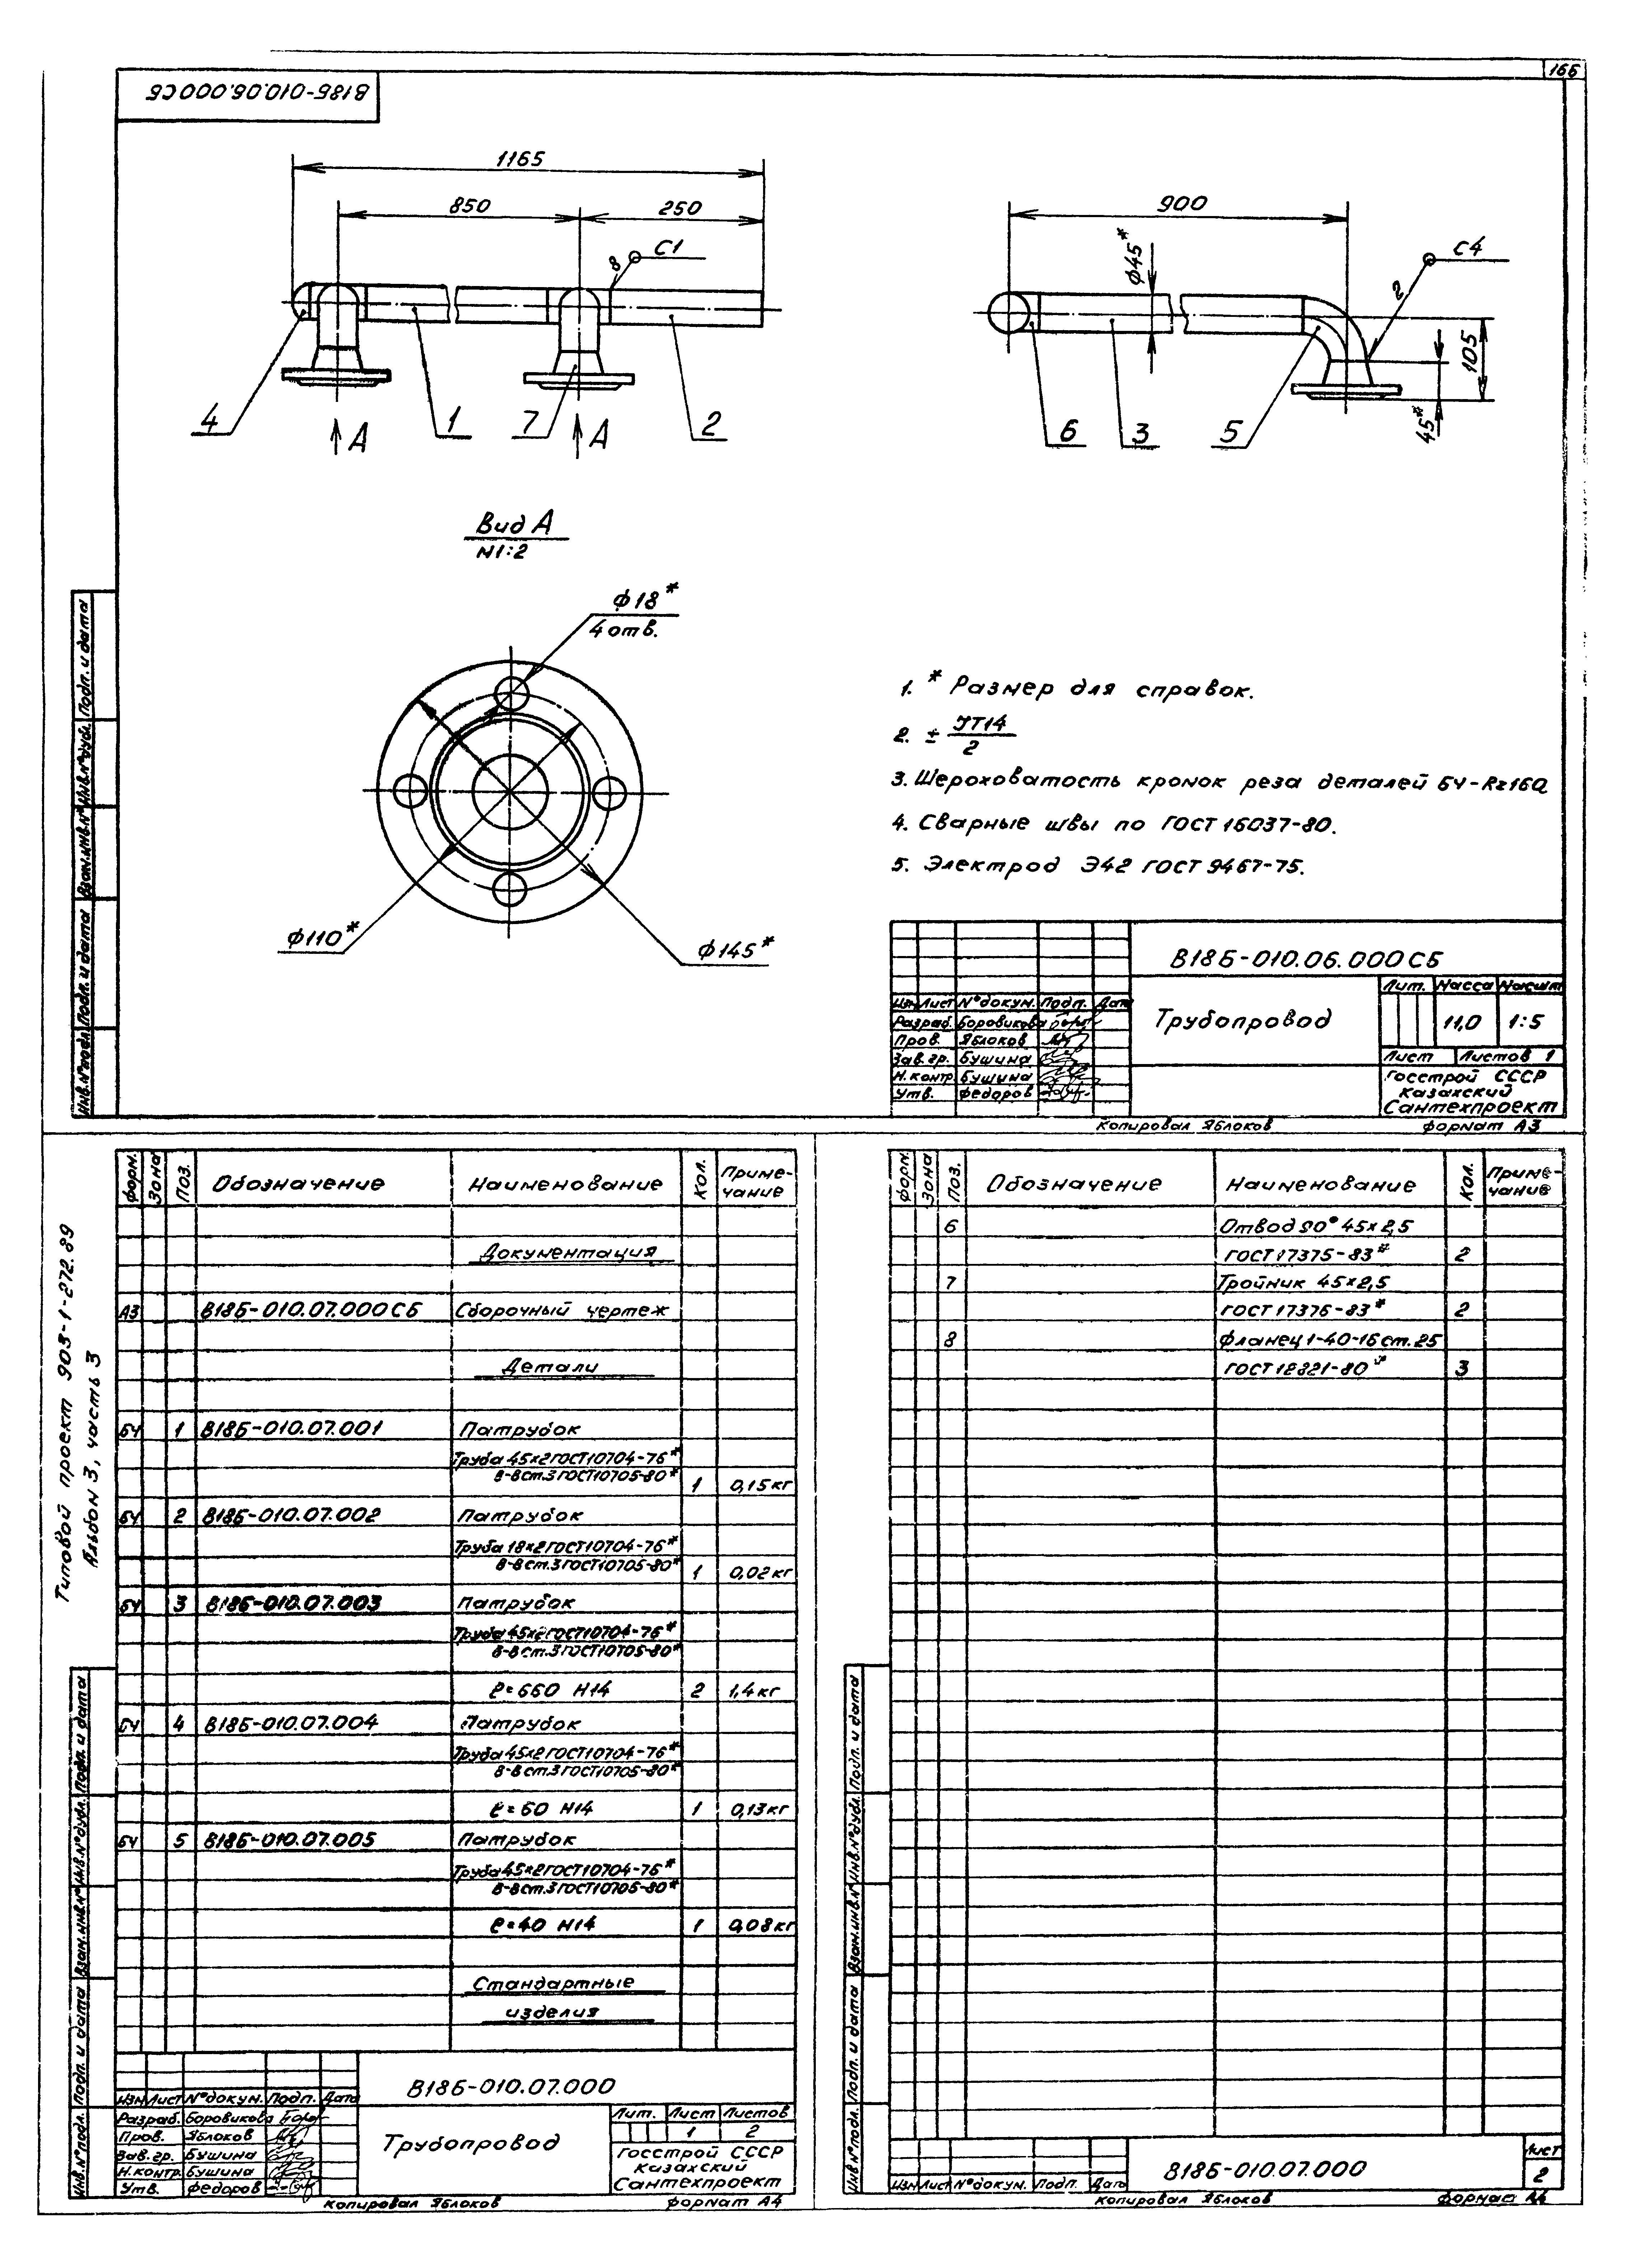 166
В18Б-010.06.000 СБ
1165
850
250
С1
8
4
1
7
2
А
А
900
ф45*
С4
2
105
45*
6
3
5
Вид А
М1:2
ф18*
4 отв.
ф110*
ф145*
1. * Размер для справок.
2. ± JT14
2
3. Шероховатость кромок реза деталей БЧ-Rz160.
4. Сварные швы по ГОСТ 16037-80.
5. Электрод Э42 ГОСТ 9467-75.
В18Б-010.06.000 СБ
Трубопровод
Лит. Масса Масшт
11,0 1:5
Лист Листов 1
Госстрой СССР
Казахский
Сантехпроект
Изм Лист N°докум. Подп. Дата
Разраб. Боровикова
Пров. Яблоков
Зав. гр. Бушина
Н.контр. Бушина
Утв. Федоров
Копировал Яблоков Формат А3
Инв.N°подл. Подп. и дата Взам.инв.N° Инв.N°дубл. Подп. и дата
Типовой проект 903-1-272.89
Альбом 3, часть 3
Форм. Зона Поз. Обозначение Наименование Кол. Приме-
чание
Документация
А3 В18Б-010.07.000 СБ Сборочный чертеж
Детали
БЧ 1 В18Б-010.07.001 Патрубок
Труба 45х2 ГОСТ 10704-76*
В-В ст.3 ГОСТ 10705-80*
1 0,15кг
БЧ 2 В18Б-010.07.002 Патрубок
Труба 18х2 ГОСТ 10704-76*
В-В ст.3 ГОСТ 10705-80*
1 0,02кг
БЧ 3 В18Б-010.07.003 Патрубок
Труба 45х2 ГОСТ 10704-76*
В-В ст.3 ГОСТ 10705-80*
ℓ=660 Н14 2 1,4кг
БЧ 4 В18Б-010.07.004 Патрубок
Труба 45х2 ГОСТ 10704-76*
В-В ст.3 ГОСТ 10705-80*
ℓ=60 Н14 1 0,13кг
БЧ 5 В18Б-010.07.005 Патрубок
Труба 45х2 ГОСТ 10704-76*
В-В ст.3 ГОСТ 10705-80*
ℓ=40 Н14 1 0,08кг
Стандартные
изделия
В18Б-010.07.000
Изм Лист N°докум. Подп. Дата
Разраб. Боровикова
Пров. Яблоков
Зав. гр. Бушина
Н.контр. Бушина
Утв. Федоров
Трубопровод
Лит. Лист Листов
1 2
Госстрой СССР
Казахский
Сантехпроект
Копировал Яблоков Формат А4
Инв.N°подл. Подп. и дата Взам.инв.N° Инв.N°дубл. Подп. и дата
Форм. Зона Поз. Обозначение Наименование Кол. Приме-
чание
6 Отвод 90° 45х2,5
ГОСТ 17375-83* 2
7 Тройник 45х2,5
ГОСТ 17376-83* 2
8 Фланец 1-40-16 ст.25
ГОСТ 12821-80* 3
Изм Лист N°докум. Подп. Дата
В18Б-010.07.000
Лист
2
Копировал Яблоков Формат А4
Инв.N°подл. Подп. и дата Взам.инв.N° Инв.N°дубл. Подп. и дата